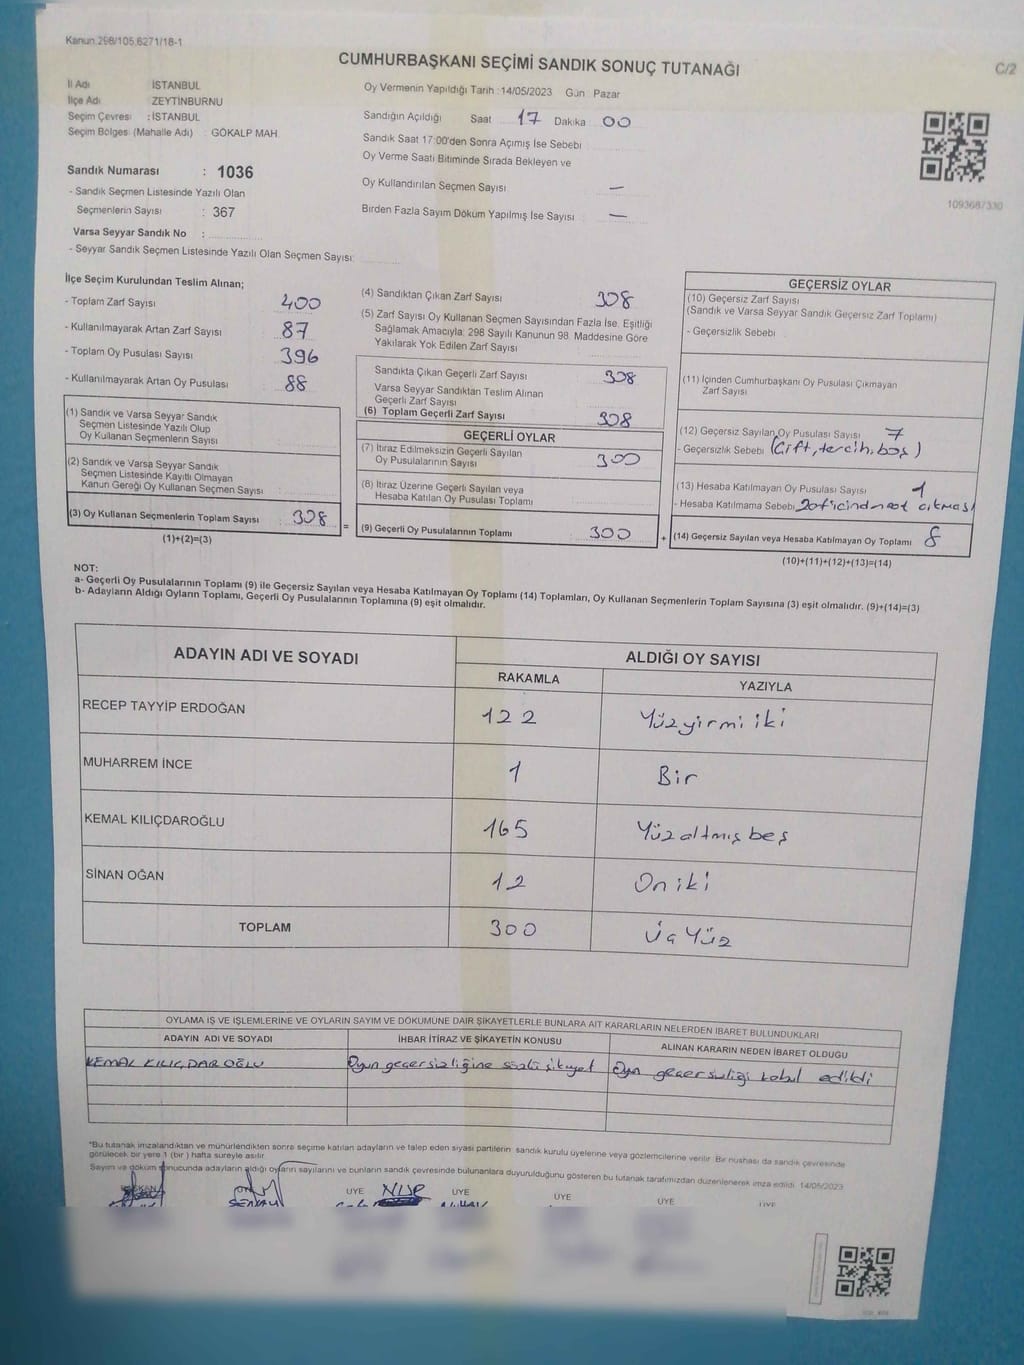 Kanun 298/105,6271/18-1
CUMHURBAŞKANI SEÇİMİ SANDIK SONUÇ TUTANAĞI
C/2
İl Adı İSTANBUL
İlçe Adı ZEYTİNBURNU
Seçim Çevresi : İSTANBUL
Seçim Bölges (Mahalle Adı) : GÖKALP MAH.
Oy Vermenin Yapıldığı Tarih : 14/05/2023 Gün Pazar
Sandığın Açıldığı Saat 17 Dakika 00
Sandık Saat 17:00'den Sonra Açımış İse Sebebi
Oy Verme Saati Bitiminde Sırada Bekleyen ve
Oy Kullandırılan Seçmen Sayısı —
Birden Fazla Sayım Döküm Yapılmış İse Sayısı —
109368/330
Sandık Numarası : 1036
- Sandık Seçmen Listesinde Yazılı Olan
Seçmenlerin Sayısı : 367
Varsa Seyyar Sandık No :
- Seyyar Sandık Seçmen Listesinde Yazılı Olan Seçmen Sayısı:
İlçe Seçim Kurulundan Teslim Alınan;
- Toplam Zarf Sayısı 400
- Kullanılmayarak Artan Zarf Sayısı 87
- Toplam Oy Pusulası Sayısı 396
- Kullanılmayarak Artan Oy Pusulası 88
(1) Sandık ve Varsa Seyyar Sandık
Seçmen Listesinde Yazılı Olup
Oy Kullanan Seçmenlerin Sayısı
(2) Sandık ve Varsa Seyyar Sandık
Seçmen Listesinde Kayıtlı Olmayan
Kanun Gereği Oy Kullanan Seçmen Sayısı :
(3) Oy Kullanan Seçmenlerin Toplam Sayısı : 308 =
(1)+(2)=(3)
(4) Sandıktan Çıkan Zarf Sayısı 308
(5) Zarf Sayısı Oy Kullanan Seçmen Sayısından Fazla İse, Eşitliği
Sağlamak Amacıyla; 298 Sayılı Kanunun 98. Maddesine Göre
Yakılarak Yok Edilen Zarf Sayısı
Sandıkta Çıkan Geçerli Zarf Sayısı 308
Varsa Seyyar Sandıktan Teslim Alınan
Geçerli Zarf Sayısı
(6) Toplam Geçerli Zarf Sayısı 308
GEÇERLİ OYLAR
(7) İtiraz Edilmeksizin Geçerli Sayılan
Oy Pusulalarının Sayısı 300
(8) İtiraz Üzerine Geçerli Sayılan veya
Hesaba Katılan Oy Pusulası Toplamı
(9) Geçerli Oy Pusulalarının Toplamı 300 +
GEÇERSİZ OYLAR
(10) Geçersiz Zarf Sayısı
(Sandık ve Varsa Seyyar Sandık Geçersiz Zarf Toplamı)
- Geçersizlik Sebebi
(11) İçinden Cumhurbaşkanı Oy Pusulası Çıkmayan
Zarf Sayısı
(12) Geçersiz Sayılan Oy Pusulası Sayısı 7
- Geçersizlik Sebebi (Çift, tercih, boş)
(13) Hesaba Katılmayan Oy Pusulası Sayısı 1
- Hesaba Katılmama Sebebi Zarf içinden not çıkması
(14) Geçersiz Sayılan veya Hesaba Katılmayan Oy Toplamı 8
(10)+(11)+(12)+(13)=(14)
NOT:
a- Geçerli Oy Pusulalarının Toplamı (9) ile Geçersiz Sayılan veya Hesaba Katılmayan Oy Toplamı (14) Toplamları, Oy Kullanan Seçmenlerin Toplam Sayısına (3) eşit olmalıdır. (9)+(14)=(3)
b- Adayların Aldığı Oyların Toplamı, Geçerli Oy Pusulalarının Toplamına (9) eşit olmalıdır.
ADAYIN ADI VE SOYADI
ALDIĞI OY SAYISI
RAKAMLA YAZIYLA
RECEP TAYYİP ERDOĞAN 122 Yüzyirmi iki
MUHARREM İNCE 1 Bir
KEMAL KILIÇDAROĞLU 165 Yüz altmış beş
SİNAN OĞAN 12 On iki
TOPLAM 300 Üç Yüz
OYLAMA İŞ VE İŞLEMLERİNE VE OYLARIN SAYIM VE DÖKÜMÜNE DAİR ŞİKAYETLERLE BUNLARA AİT KARARLARIN NELERDEN İBARET BULUNDUKLARI
ADAYIN ADI VE SOYADI İHBAR İTİRAZ VE ŞİKAYETİN KONUSU ALINAN KARARIN NEDEN İBARET OLDUĞU
KEMAL KILIÇDAROĞLU Oyun geçersizliğine sözlü şikayet Oyun geçersizliği kabul edildi
*Bu tutanak imzalandıktan ve mühürlendikten sonra seçime katılan adayların ve talep eden siyasi partilerin sandık kurulu üyelerine veya gözlemcilerine verilir. Bir nüshası da sandık çevresinde
görülecek bir yere 1 (bir) hafta süreyle asılır.
Sayım ve döküm sonucunda adayların aldığı oyların sayılarını ve bunların sandık çevresinde bulunanlara duyurulduğunu gösteren bu tutanak tarafımızdan düzenlenerek imza edildi. 14/05/2023
BAŞKAN ÜYE ÜYE ÜYE ÜYE ÜYE